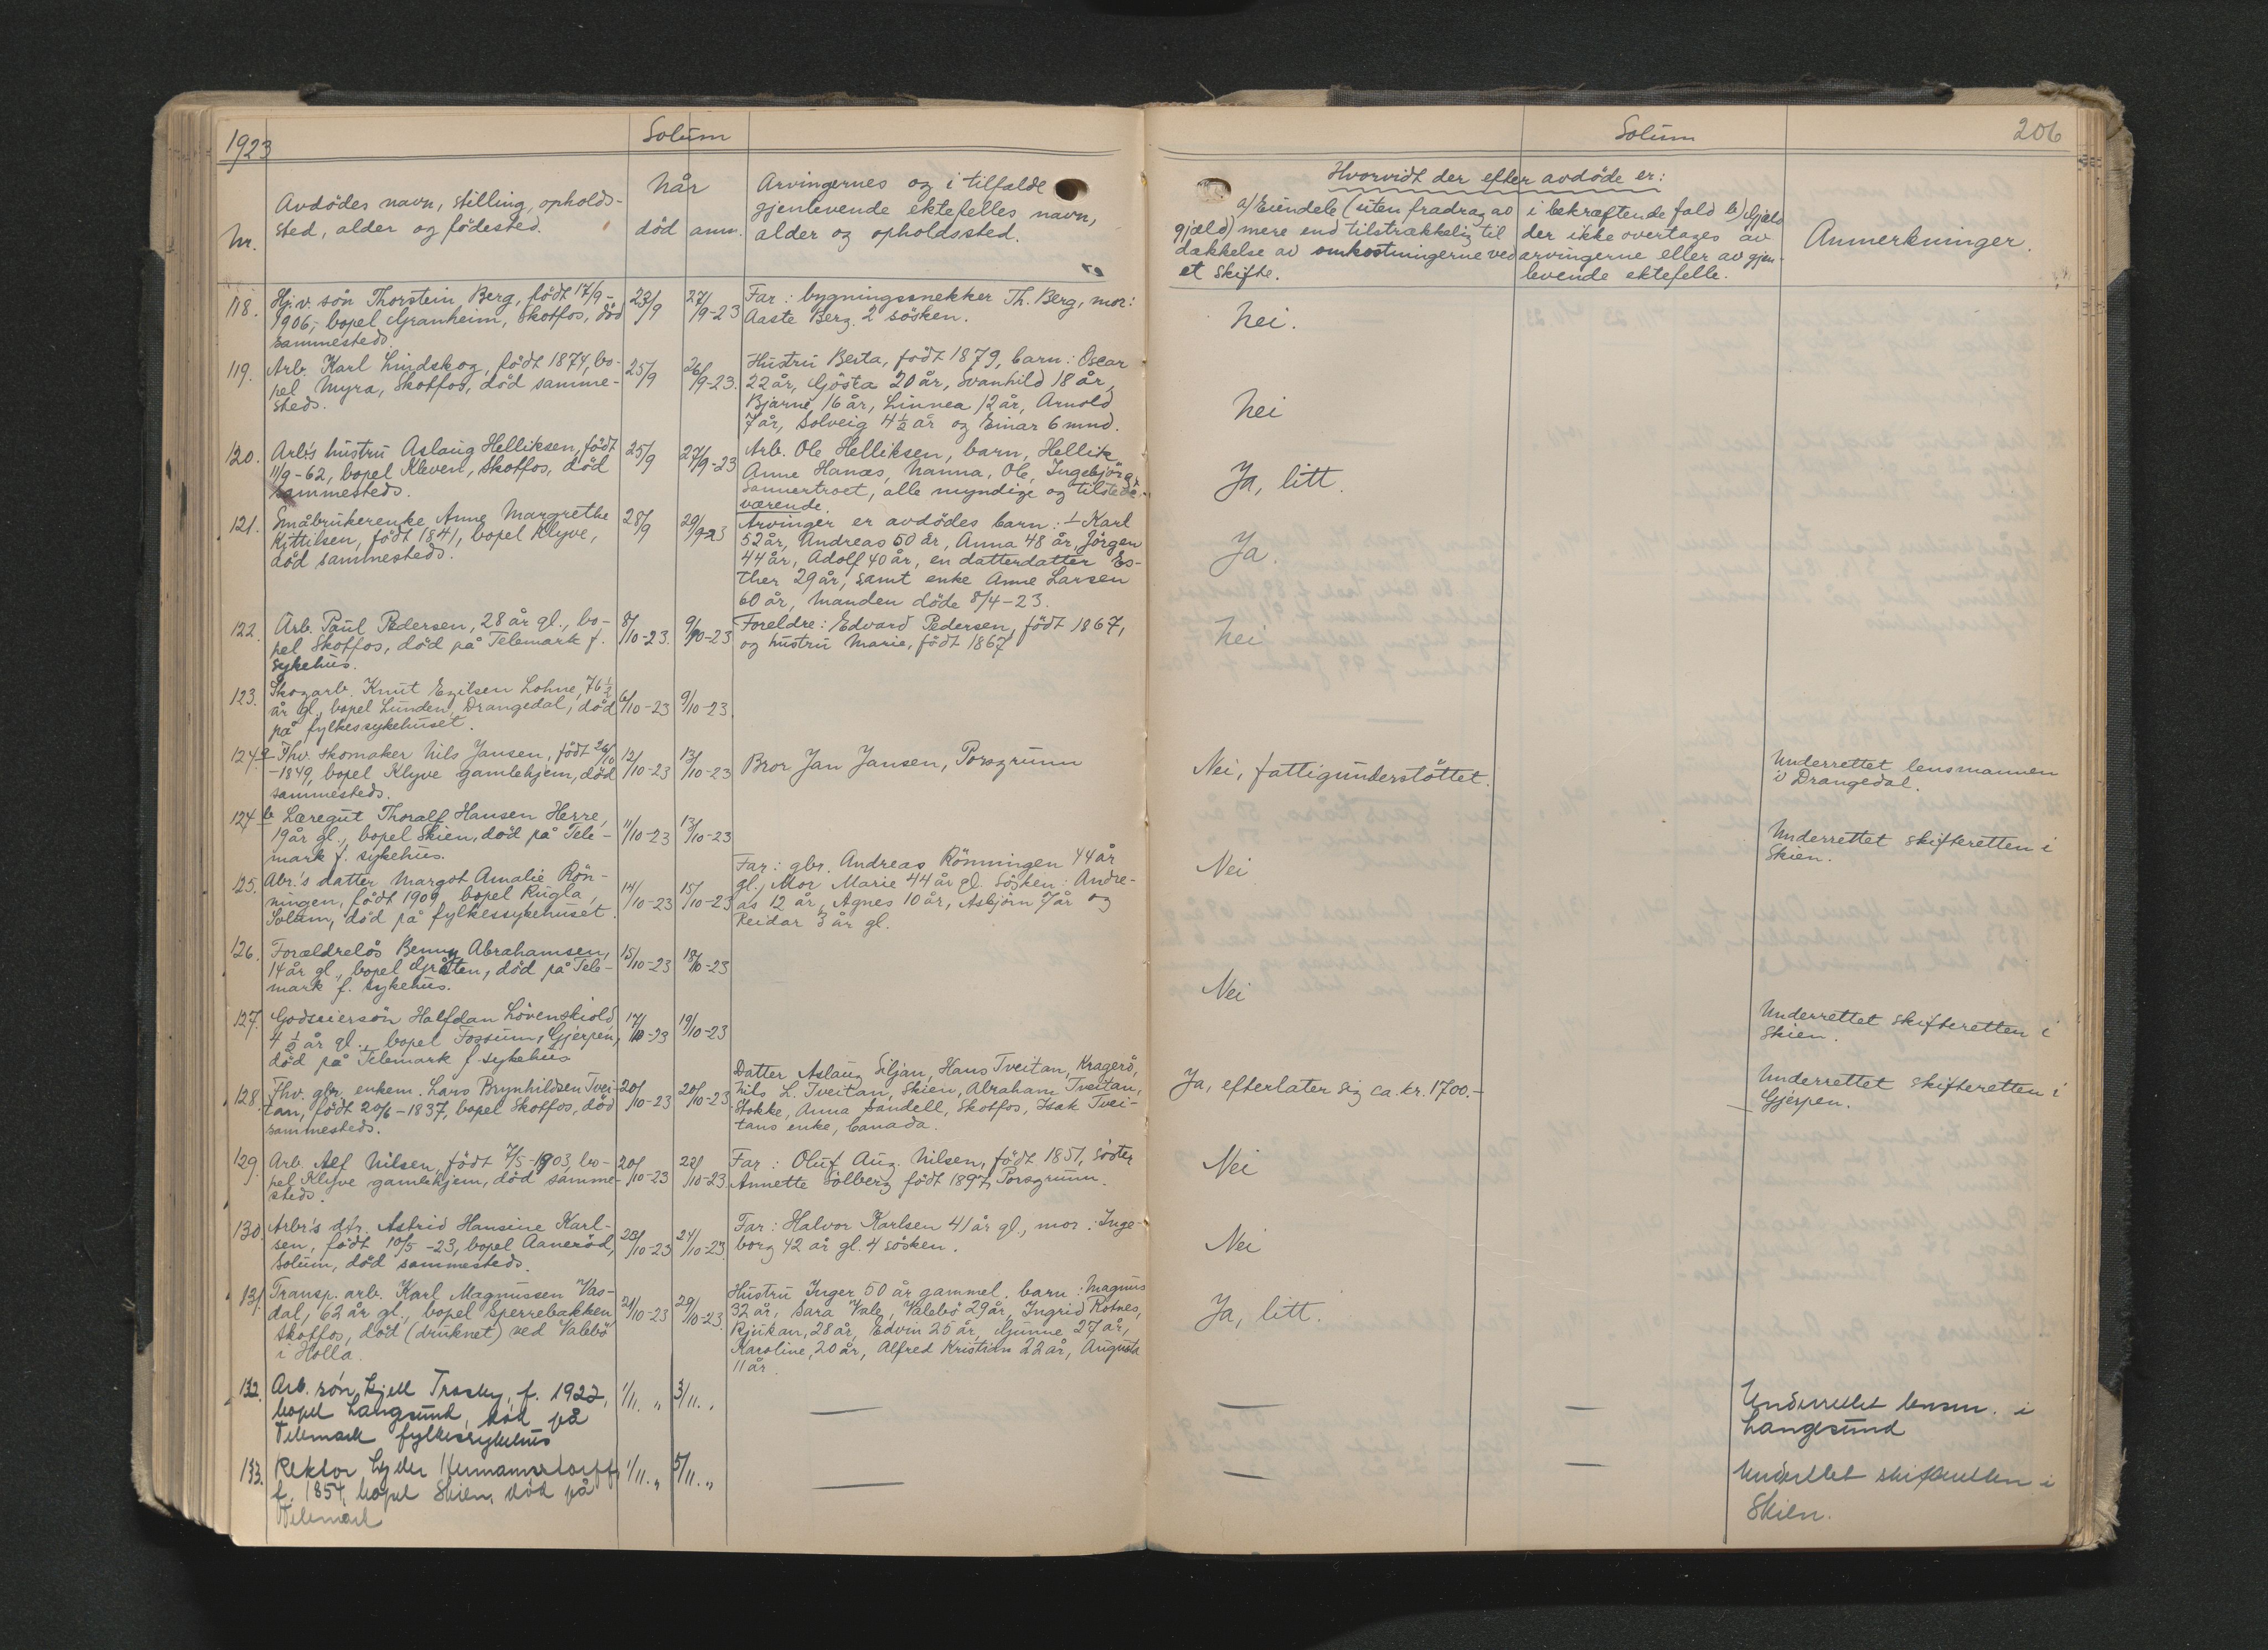 1923
Solum
Nr.
Avdödes navn, stilling, opholds-
sted, alder og födested.
Når
död anm.
Arvingernes og i tilfælde
gjenlevende ektefelles navn,
alder og opholdssted.
118.
Hj.v. sön Thorstein Berg, födt 17/9-
1906, bopel Granheim, Skotfos, död
sammesteds.
23/9
27/9-23
Far: bygningssnekker Th. Berg, mor:
Aaste Berg. 2 sösken.
119.
Arb. Karl Lindskog, födt 1874, bo-
pel Myra, Skotfos, död samme-
steds.
25/9
26/9-23.
Hustru Berta, födt 1879, barn: Oscar
22 år, Gösta 20 år, Svanhild 18 år,
Bjarne, 16 år, Linnea 12 år, Arnold
7 år, Solveig 4½ år og Einar 6 mnd.
120.
Arb.s hustru Aslaug Helliksen, födt
11/9-62, bopel Kleven, Skotfos, död
sammesteds.
25/9
27/9-23
Arb. Ole Helliksen, barn, Hellik,
Anne Hanæs, Nanna, Ole, Ingebjörg
Sannertroet, alle myndige og tilstede-
værende.
121.
Småbrukerenke Anne Margrethe
Kittilsen, födt 1841, bopel Klyve,
död sammesteds.
28/9
29/9-23
Arvinger er avdödes barn: Karl
52 år, Andreas 50 år, Anna 48 år, Jörgen
44 år, Adolf 40 år, en datterdatter Es-
ther 29 år, samt enke Anne Larsen
60 år, manden döde 8/4-23.
122.
Arb. Paul Pedersen, 28 år gl., bo-
pel Skotfos, död på Telemark f.
sykehus.
8/10-23.
9/10-23
Foreldre: Edvard Pedersen, födt 1867,
og hustru Marie, födt 1867
123.
Skogarb. Knut Egilsen Lohne, 76½
år gl., bopel Lunden, Drangedal, död
på fylkessykehuset.
6/10-23
9/10-23
124 a
Fhv. skomaker Nils Jansen, födt 26/10
-1849, bopel Klyve gamlehjem, död
sammesteds.
12/10-23
13/10-23
Bror Jan Jansen, Porsgrunn
124 b
Læregut Thoralf Hansen Herre,
19 år gl., bopel Skien, död på Tele-
mark f. sykehus.
11/10-23
13/10-23
125.
Abr.'s datter Margot Amalie Rön-
ningen, födt 1909, bopel Rugla,
Solum, död på fylkessykehuset.
14/10-23
15/10-23
Far: gbr. Andreas Rönningen 44 år
gl., Mor Marie 44 år gl. Sösken: Andre-
as 12 år, Agnes 10 år, Asbjörn 7 år og
Reidar 3 år gl.
126.
Forældrelös Benny Abrahamsen,
14 år gl., bopel Gråten, död på Tele-
mark f. sykehus.
15/10-23
18/10-23
127.
Godseiersön Halfdan Lövenskiold
4½ år gl., bopel Fossum, Gjerpen,
död på Telemark f. sykehus
17/10-23
19/10-23
128.
Fhv. gbr., enkem. Lars Brynhildsen Tvei-
tan, födt 20/6-1837, bopel Skotfos, död
sammesteds.
20/10-23
20/10-23
Datter Aslaug Siljan, Hans Tveitan, Kragerö,
Nils L. Tveitan, Skien, Abraham Tveitan,
Hokke, Anna Sandell, Skotfos, Isak Tvei-
tans enke, Canada.
129.
Arb. Alf Nilsen, födt 7/5-1903, bo-
pel Klyve gamlehjem, död samme-
steds.
20/10-23
22/10-23.
Far: Oluf Aug. Nilsen, födt 1851, söster
Annette Solberg födt 1897, Porsgrunn.
130.
Arbr's dtr. Astrid Hansine Karl-
sen, födt 10/5-23, bopel Aaneröd,
Solum, död sammesteds.
23/10-23
24/10-23
Far: Halvor Karlsen 41 år gl., mor: Inge-
borg 42 år gl. 4 sösken.
131.
Transp. arb. Karl Magnussen Vas-
dal, 62 år gl., bopel Sperrebakken
Skotfos, död (druknet) ved Valebö
i Holla.
24/10-23
29/10-23.
Hustru Inger 50 år gammel. barn: Magnus
32 år, Sara Vale, Valebö 29 år, Ingrid Rotnes,
Rjukan, 28 år, Edvin 25 år, Gunne 27 år,
Karoline, 20 år, Alfred Kristian 22 år, Augusta
11 år.
132.
Arb. sön Kjell Trosby, f. 1922,
bopel Langesund, död på
Telemark fylkessykehus
1/11. "
3/11. "
133.
Rektor Lyder Hermannstorff
f. 1854, bopel Skien, död på
Telemark
1/11. "
5/11. "
Solum
206
Hvorvidt der efter avdöde er:
a) Eiendele (uten fradrag av
gjæld) mere end tilstrækkelig til
dækkelse av omkostningerne ved
et skifte.
i bekræftende fald b) Gjæld
der ikke overtages av
arvingerne eller av gjen-
levende ektefelle.
Anmerkninger.
Nei.
Nei
Ja, litt.
Ja.
Nei
Nei, fattigunderstöttet.
Underrettet lensmannen
i Drangedal.
Nei
Underrettet skifteretten i
Skien.
Nei
Underrettet skifteretten i
Skien.
Ja, efterlater sig ca. kr. 1700.-
Underrettet skifteretten i
Gjerpen.
Nei
Nei
Ja, litt.
Underrettet lensm. i
Langesund
Underrettet skifteretten i
Skien.